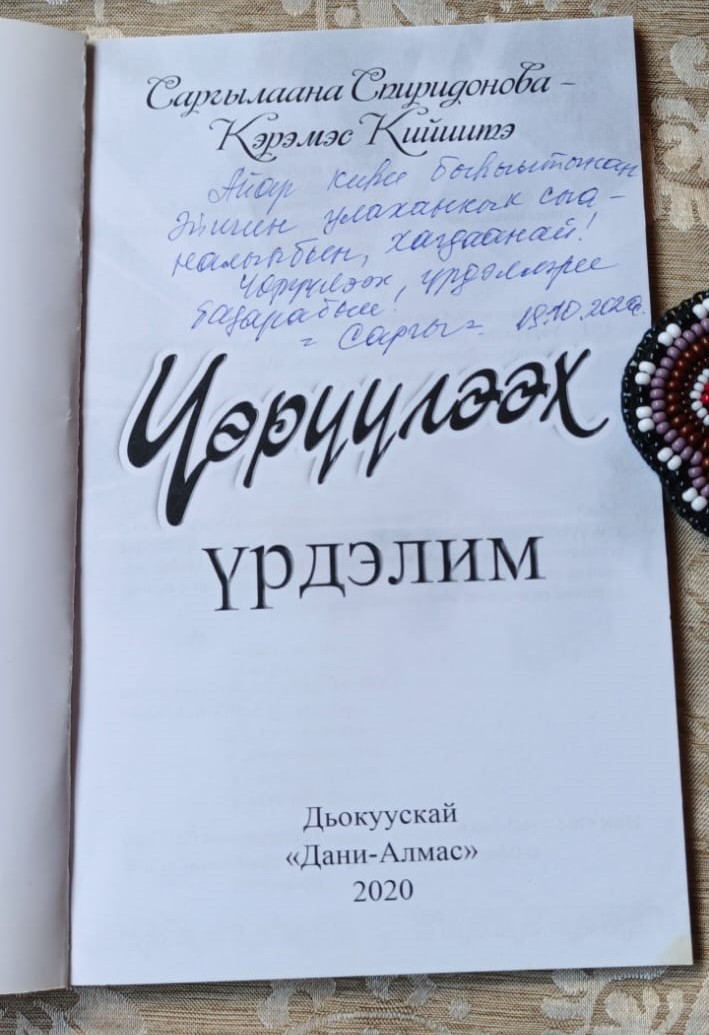 Саргылаана Спиридонова –
Кэрэмэс Кийиитэ
Айар киһи быһыытынан
Эйигин улаханнык сыа-
налыыбын, хагдаанай!
Чөрүүлээх, үрдэллэргэ
баҕарабын!
= Саргы = 19.10.2020с.
Чөрүүлээх
үрдэлим
Дьокуускай
«Дани-Алмас»
2020